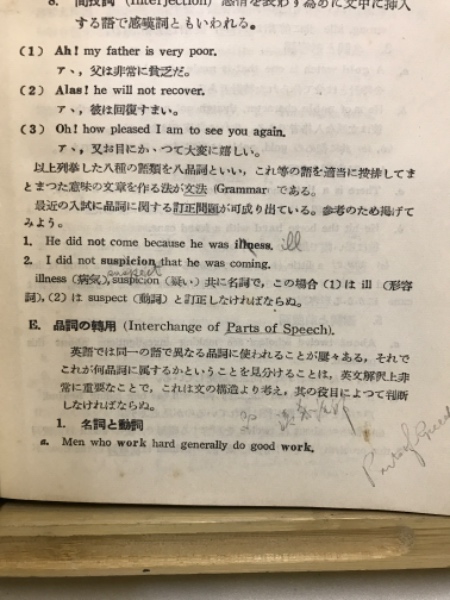 8. 間投詞 (Interjection) 感情を表わす為めに文中に挿入
する語で感嘆詞ともいわれる。
(1) Ah! my father is very poor.
アヽ, 父は非常に貧乏だ。
(2) Alas! he will not recover.
アヽ, 彼は回復すまい。
(3) Oh! how pleased I am to see you again.
アヽ, 又お目にかゝつて大変に嬉しい。
以上列挙した八種の語類を八品詞といい, これ等の語を適当に按排してま
とまつた意味の文章を作る法が文法 (Grammar) である。
最近の入試に品詞に関する訂正問題が可成り出ている。参考のため掲げて
みよう。
1. He did not come because he was illness. ill
2. I did not suspicion that he was coming.
suspect
illness (病気), suspicion (疑い) 共に名詞で, この場合 (1) は ill (形容
詞), (2) は suspect (動詞) と訂正しなければならぬ。
E. 品詞の轉用 (Interchange of Parts of Speech).
英語では同一の語で異なる品詞に使われることが屢々ある, それで
これが何品詞に属するかということを見分けることは, 英文解釈上非
常に重要なことで, これは文の構造より考え, 其の役目によつて判断
しなければならぬ。
1. 名詞と動詞
a. Men who work hard generally do good work.
Parts of Speech